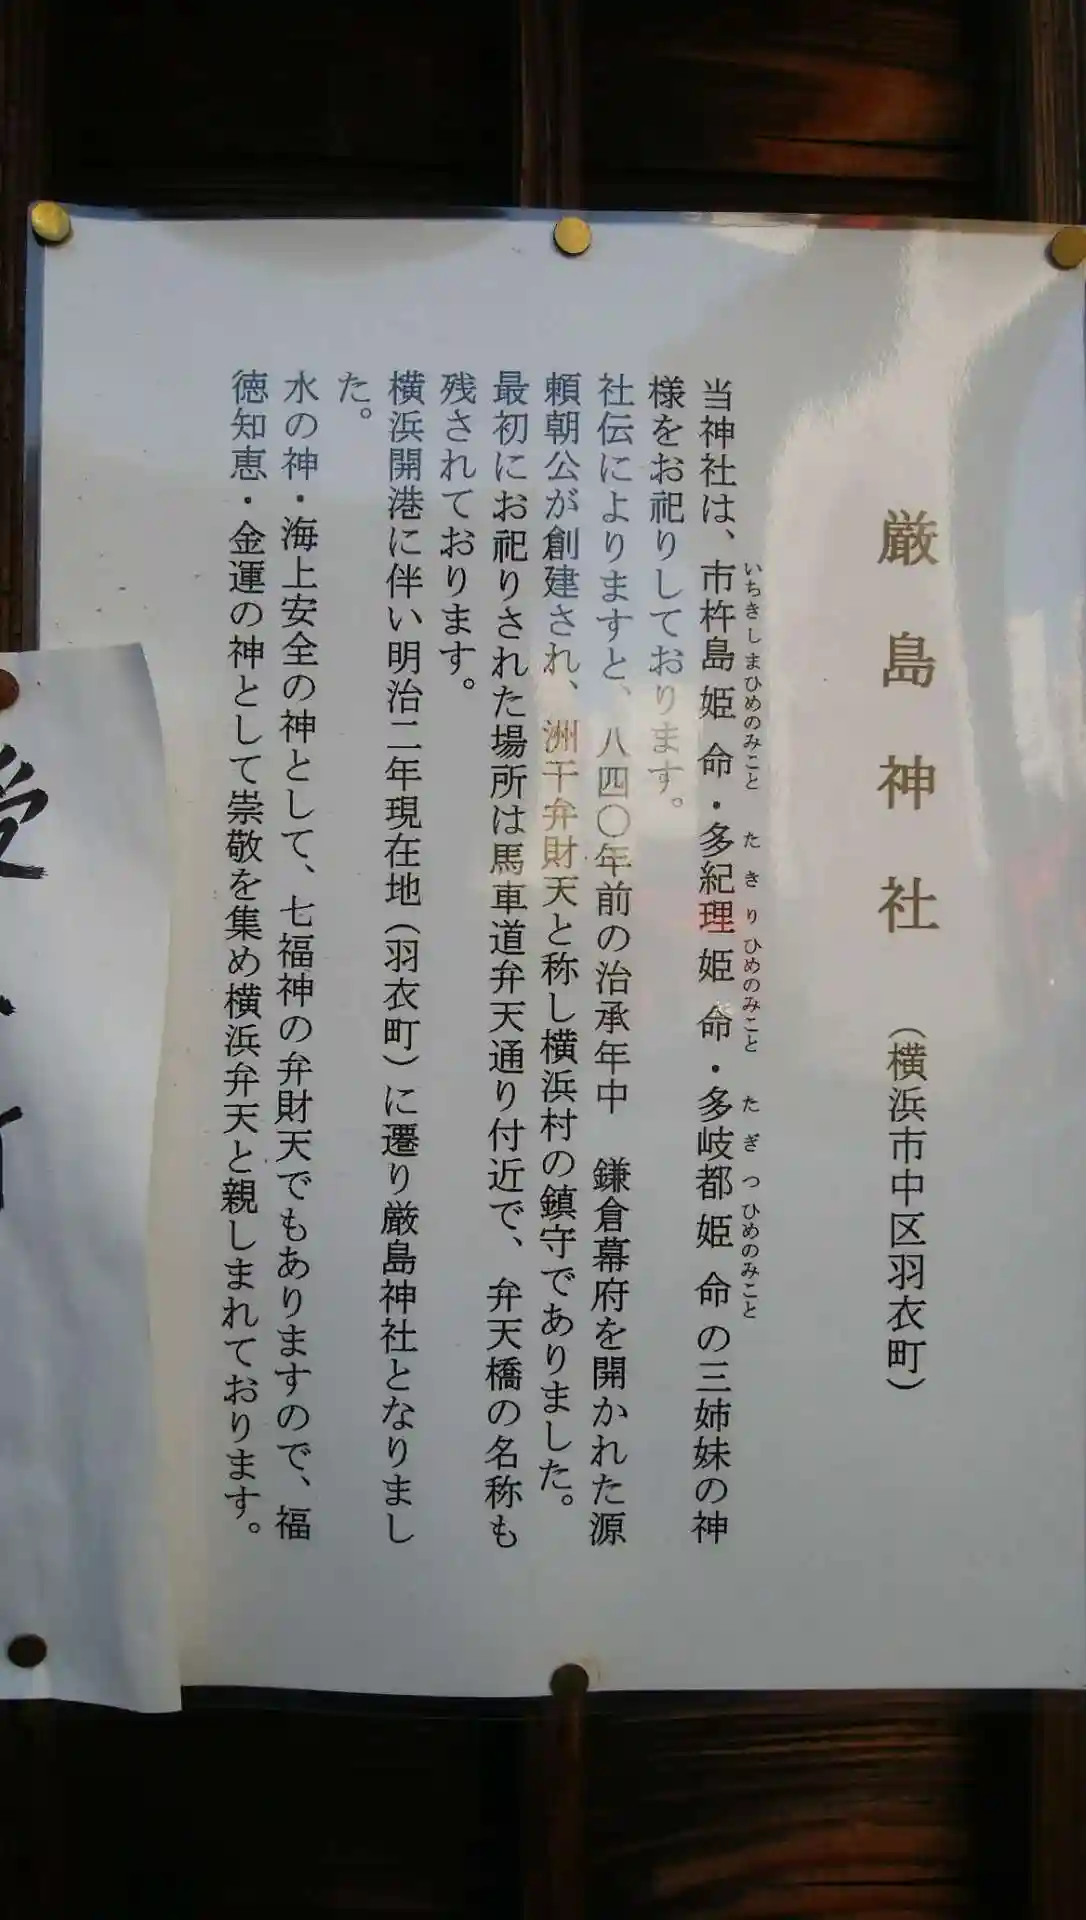 厳島神社　（横浜市中区羽衣町）
当神社は、市杵島姫命・多紀理姫命・多岐都姫命の三姉妹の神
いちきしまひめのみこと　たきりひめのみこと　たぎつひめのみこと
様をお祀りしております。
社伝によりますと、八四〇年前の治承年中　鎌倉幕府を開かれた源
頼朝公が創建され、洲干弁財天と称し横浜村の鎮守でありました。
最初にお祀りされた場所は馬車道弁天通り付近で、弁天橋の名称も
残されております。
横浜開港に伴い明治二年現在地（羽衣町）に遷り厳島神社となりまし
た。
水の神・海上安全の神として、七福神の弁財天でもありますので、福
徳知恵・金運の神として崇敬を集め横浜弁天と親しまれております。